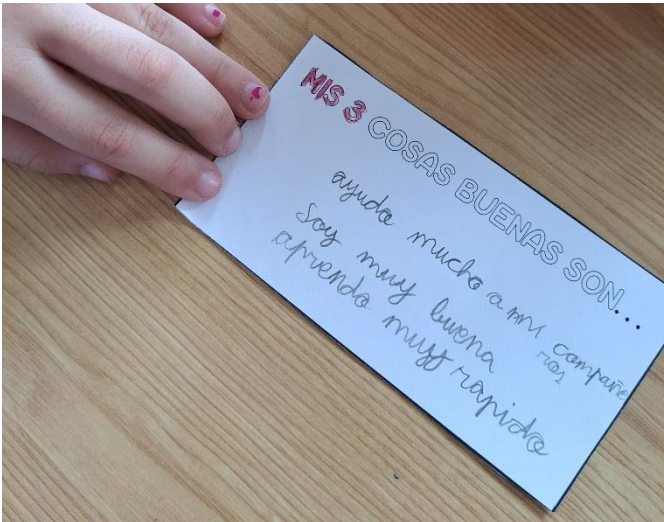 MIS 3 COSAS BUENAS SON...
ayudo mucho a mi compañe
ras
Soy muy buena
aprendo muy rápido